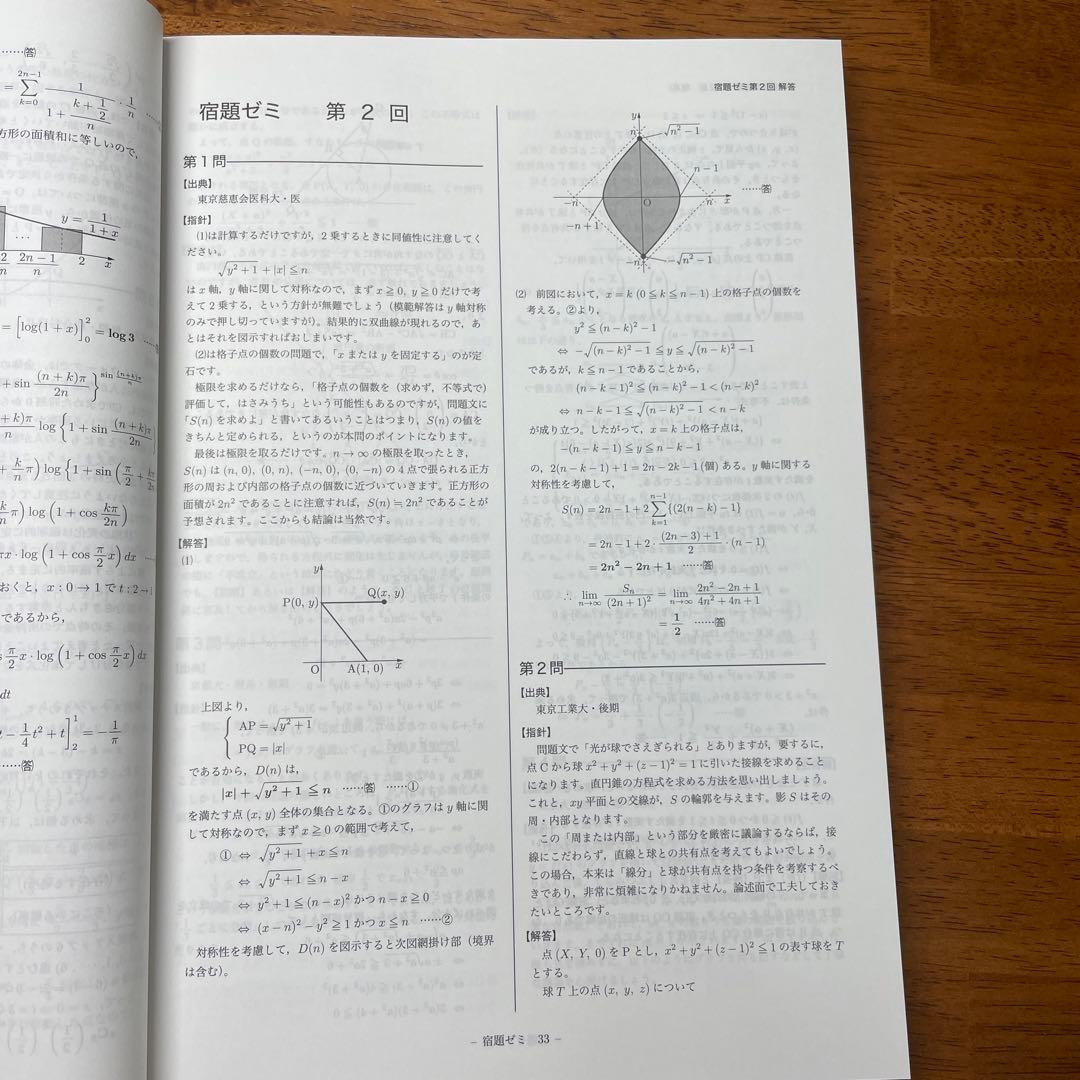 ……答
= \sum_{k=0}^{2n-1} \frac{1}{1+\frac{k+\frac{1}{2}}{n}} \cdot \frac{1}{n}
方形の面積和に等しいので，
y = \frac{1}{1+x}
…
\frac{2}{n} \frac{2n-1}{n} 2 x
= [log(1+x)]_0^2 = log 3 ……
宿題ゼミ第2回 解答
宿題ゼミ 第 2 回
第1問
【出典】
東京慈恵会医科大・医
【指針】
(1)は計算するだけですが，2乗するときに同値性に注意してく
ださい。
\sqrt{y^2+1}+|x| ≦ n
は x 軸，y 軸に関して対称なので，まず x≧0, y≧0 だけで考
えて2乗する，という方針が無難でしょう（模範解答は y 軸対称
のみで押し切っていますが）。結果的に双曲線が現れるので，あ
とはそれを図示すればおしまいです。
(2)は格子点の個数の問題で，「x または y を固定する」のが定
石です。
極限を求めるだけなら，「格子点の個数を（求めず，不等式で）
評価して，はさみうち」という可能性もあるのですが，問題文に
「S(n) を求めよ」と書いてあるいうことはつまり，S(n) の値を
きちんと定められる，というのが本問のポイントになります。
最後は極限を取るだけです。n→∞ の極限を取ったとき，
S(n) は (n, 0), (0, n), (−n, 0), (0, −n) の4点で張られる正方
形の周および内部の格子点の個数に近づいていきます。正方形の
面積が 2n^2 であることに注意すれば，S(n)≒2n^2 であることが
予想されます。ここからも結論は当然です。
【解答】
(1)
y
P(0, y) Q(x, y)
O A(1, 0) x
上図より，
AP = \sqrt{y^2+1}
PQ = |x|
であるから，D(n) は，
|x| + \sqrt{y^2+1} ≦ n ……答 ……①
を満たす点 (x, y) 全体の集合となる。①のグラフは y 軸に関
して対称なので，まず x≧0 の範囲で考えて，
① ⇔ \sqrt{y^2+1}+x≦n
⇔ \sqrt{y^2+1}≦n−x
⇔ y^2+1≦(n−x)^2 かつ n−x≧0
⇔ (x−n)^2−y^2≧1 かつ x≦n ……②
対称性を考慮して，D(n) を図示すると次図網掛け部（境界
は含む）。
y
n \sqrt{n^2−1}
n−1
……答
−n O n x
−n+1
−n −\sqrt{n^2−1}
(2) 前図において，x=k (0≦k≦n−1) 上の格子点の個数を
考える。②より，
y^2≦(n−k)^2−1
⇔ −\sqrt{(n−k)^2−1}≦y≦\sqrt{(n−k)^2−1}
であるが，k≦n−1 であることから，
(n−k−1)^2≦(n−k)^2−1<(n−k)^2
⇔ n−k−1≦\sqrt{(n−k)^2−1}<n−k
が成り立つ。したがって，x=k 上の格子点は，
−(n−k−1)≦y≦n−k−1
の，2(n−k−1)+1=2n−2k−1(個) ある。y 軸に関する
対称性を考慮して，
S(n) = 2n−1+2\sum_{k=1}^{n−1}{(2(n−k)−1}
= 2n−1+2·\frac{(2n−3)+1}{2}·(n−1)
= 2n^2−2n+1 ……答
∴ \lim_{n→∞} \frac{S_n}{(2n+1)^2} = \lim_{n→∞} \frac{2n^2−2n+1}{4n^2+4n+1}
= \frac{1}{2} ……答
第2問
【出典】
東京工業大・後期
【指針】
問題文で「光が球でさえぎられる」とありますが，要するに，
点 C から球 x^2+y^2+(z−1)^2=1 に引いた接線を求めること
になります。直円錐の方程式を求める方法を思い出しましょう。
これと，xy 平面との交線が，S の輪郭を与えます。影 S はその
周・内部となります。
この「周または内部」という部分を厳密に議論するならば，接
線にこだわらず，直線と球との共有点を考えてもよいでしょう。
この場合，本来は「線分」と球が共有点を持つ条件を考察するべ
きであり，非常に煩雑になりかねません。論述面で工夫しておき
たいところです。
【解答】
点 (X, Y, 0) を P とし，x^2+y^2+(z−1)^2≦1 の表す球を T
とする。
球 T 上の点 (x, y, z) について
− 宿題ゼミ 33 −